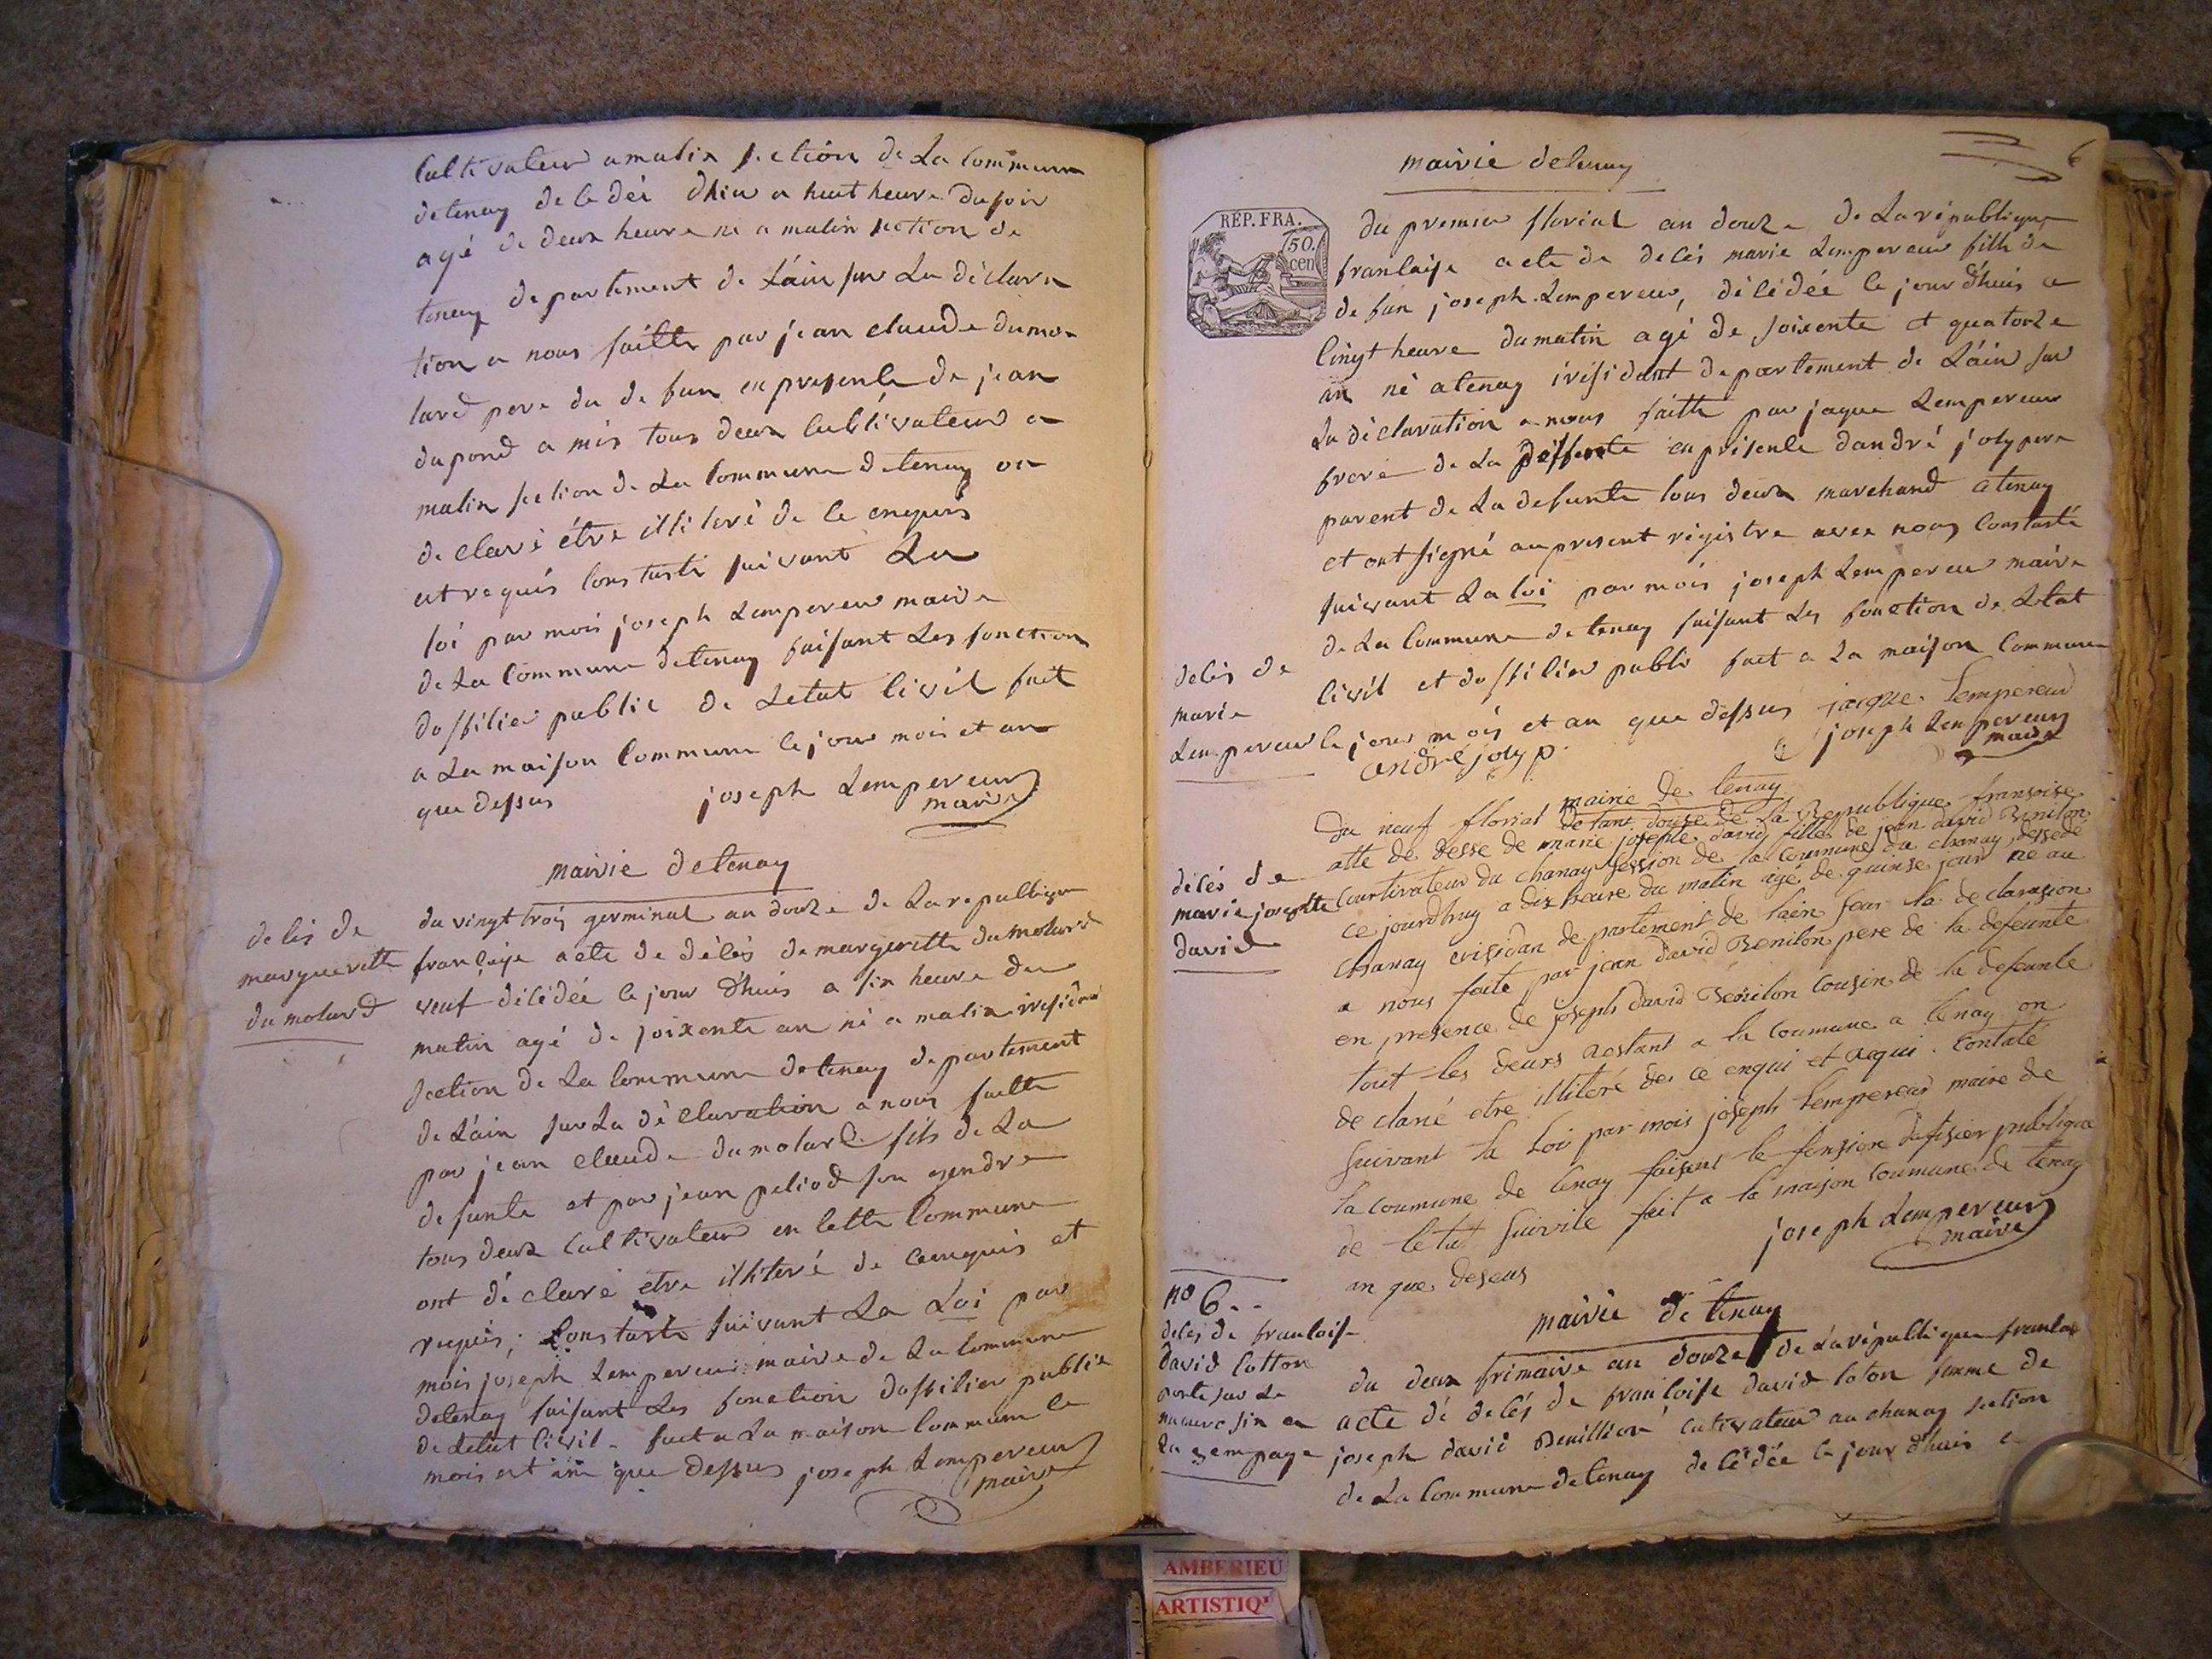 Cultivateur a malix section de La Commune
detenay decedéé dhier a huit heure du soir
agé de deux heure né a malix section de
tenay departement de Láin sur La déclara
tion a nous faitte par jean claude dumo-
lard pere du defun en presence de jean
dupond a mis tous deux cultivateur a
malix section de La Commune detenay on
declaré étre illiteré de ce enquis
et requis Constasté suivant La
loi par mois joseph Lempereur maire
de La Commune detenay faisant Les fonction
dofficier public de Letat Civil fait
a La maison Commune le jour mois et an
que dessus joseph Lempereur
maire
mairie detenay
deces de
margueritte
dumolard
du vingt trois germinal an douze de La republique
française acte de décés de marguerite dumolard
veuf décédée ce jour d'huis a six heure du
matin agé de soixente an né a malix residant
section de La Commune detenay departement
de Láin sur La déclaration a nous faitte
par jean claude dumolard fils de La
defunte et par jean peliod son gendre
tous deux cultivateur en cette Commune
ont déclaré etre illiteré de ce enquis et
requis; Constasté suivant La Loi par
mois joseph Lempereur maire de La Commune
detenay faisant Les fonction dofficier public
de Letat Civil. fait a La maison Commune le
mois et an que dessus joseph Lempereur
maire
6
mairie detenay
REP. FRA.
50.
cen
du premier florial an douze de La république
francaise acte de deces marie Lempereur fille de
defun joseph Lempereur, décédéé ce jour d'huis a
cinq heure du matin agé de soixente et quatorze
an né a tenay irésidant departement de Láin sur
La déclaration a nous faitte par jaque Lempereur
frere de La deffunte en présence dandré joly pere
parent de La defunte tous deux marchand a tenay
et ont signé au present régistre avec nous Constasté
suivant La loi par mois joseph Lempereur maire
de La Commune detenay faisant Les fonction de Létat
civil et dofficier public fait a La maison Commune
le jour mois et an que dessus jacque Lempereur
andré joly p. joseph Lempereur
maire
deces de
marie
Lempereur
mairie de tenay
du neuf florial de lant douse de la Republique fransoise
atte de desse de marie josephte david fille de jean david Benilon
Courtivateur du chanay session de la commune du chanay dessede
ce jourdhuy a dix heure du matin agé de quinse jour ne au
chanay erisidan de partement de lain seur la declarasion
a nous faite par jean david Benilon pere de la defeunte
en presence de joseph david Benilon Cousin de la defeunte
tout les deurs restant a la coumune a tenay on
de claré etre illiteré de ce enqui et requi. Contaté
suivant la loi par mois joseph Lempereur maire de
la coumune de tenay faisent le fonsion dofisier publique
de letat suivile fait a la maison coumune de tenay
an que deseus joseph Lempereur
maire
décés de
marie josephte
david
mairie de tenay
no 6..
deces de francoise
david Cotton
porté sur Le
numero six en
La 3em page
du deux frimaire an douze de La république francai
acte dé decés de francoise david Coton femme de
joseph david Benillion cultivateur au chanay section
de La Commune detenay decédée ce jour dhuis a
AMBERIEU
ARTISTIQ